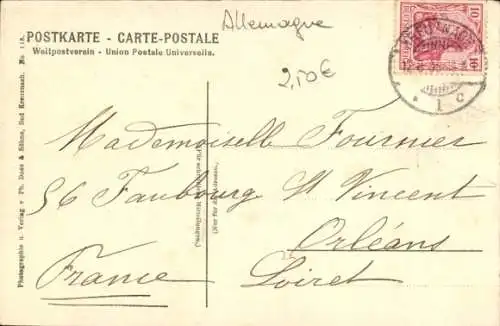 Allemagne
POSTKARTE - CARTE-POSTALE
Weltpostverein - Union Postale Universelle.
2,50€
10 10
Mademoiselle Fournier
56 Faubourg St Vincent
Orléans
Loiret
France
Photographie u. Verlag v. Ph. Doss & Söhne, Bad Kreuznach. No 118.
(Nur für die Adresse.)